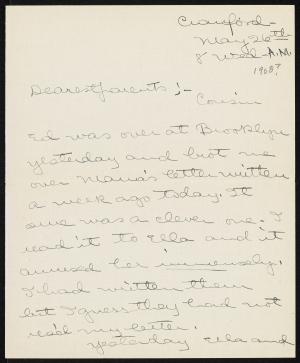 Cranford-
May 26th
8 Wed- A.M.
1908?
Dearest parents;-
Cousin
Ed was over at Brooklyn
yesterday and brot me
over Mama's letter written
a week ago today. It
was a clever one. I
read it to Ella and it
amused her immensely.
I had written them
but I guess they had not
rec'd my letter.
Yesterday Ella and